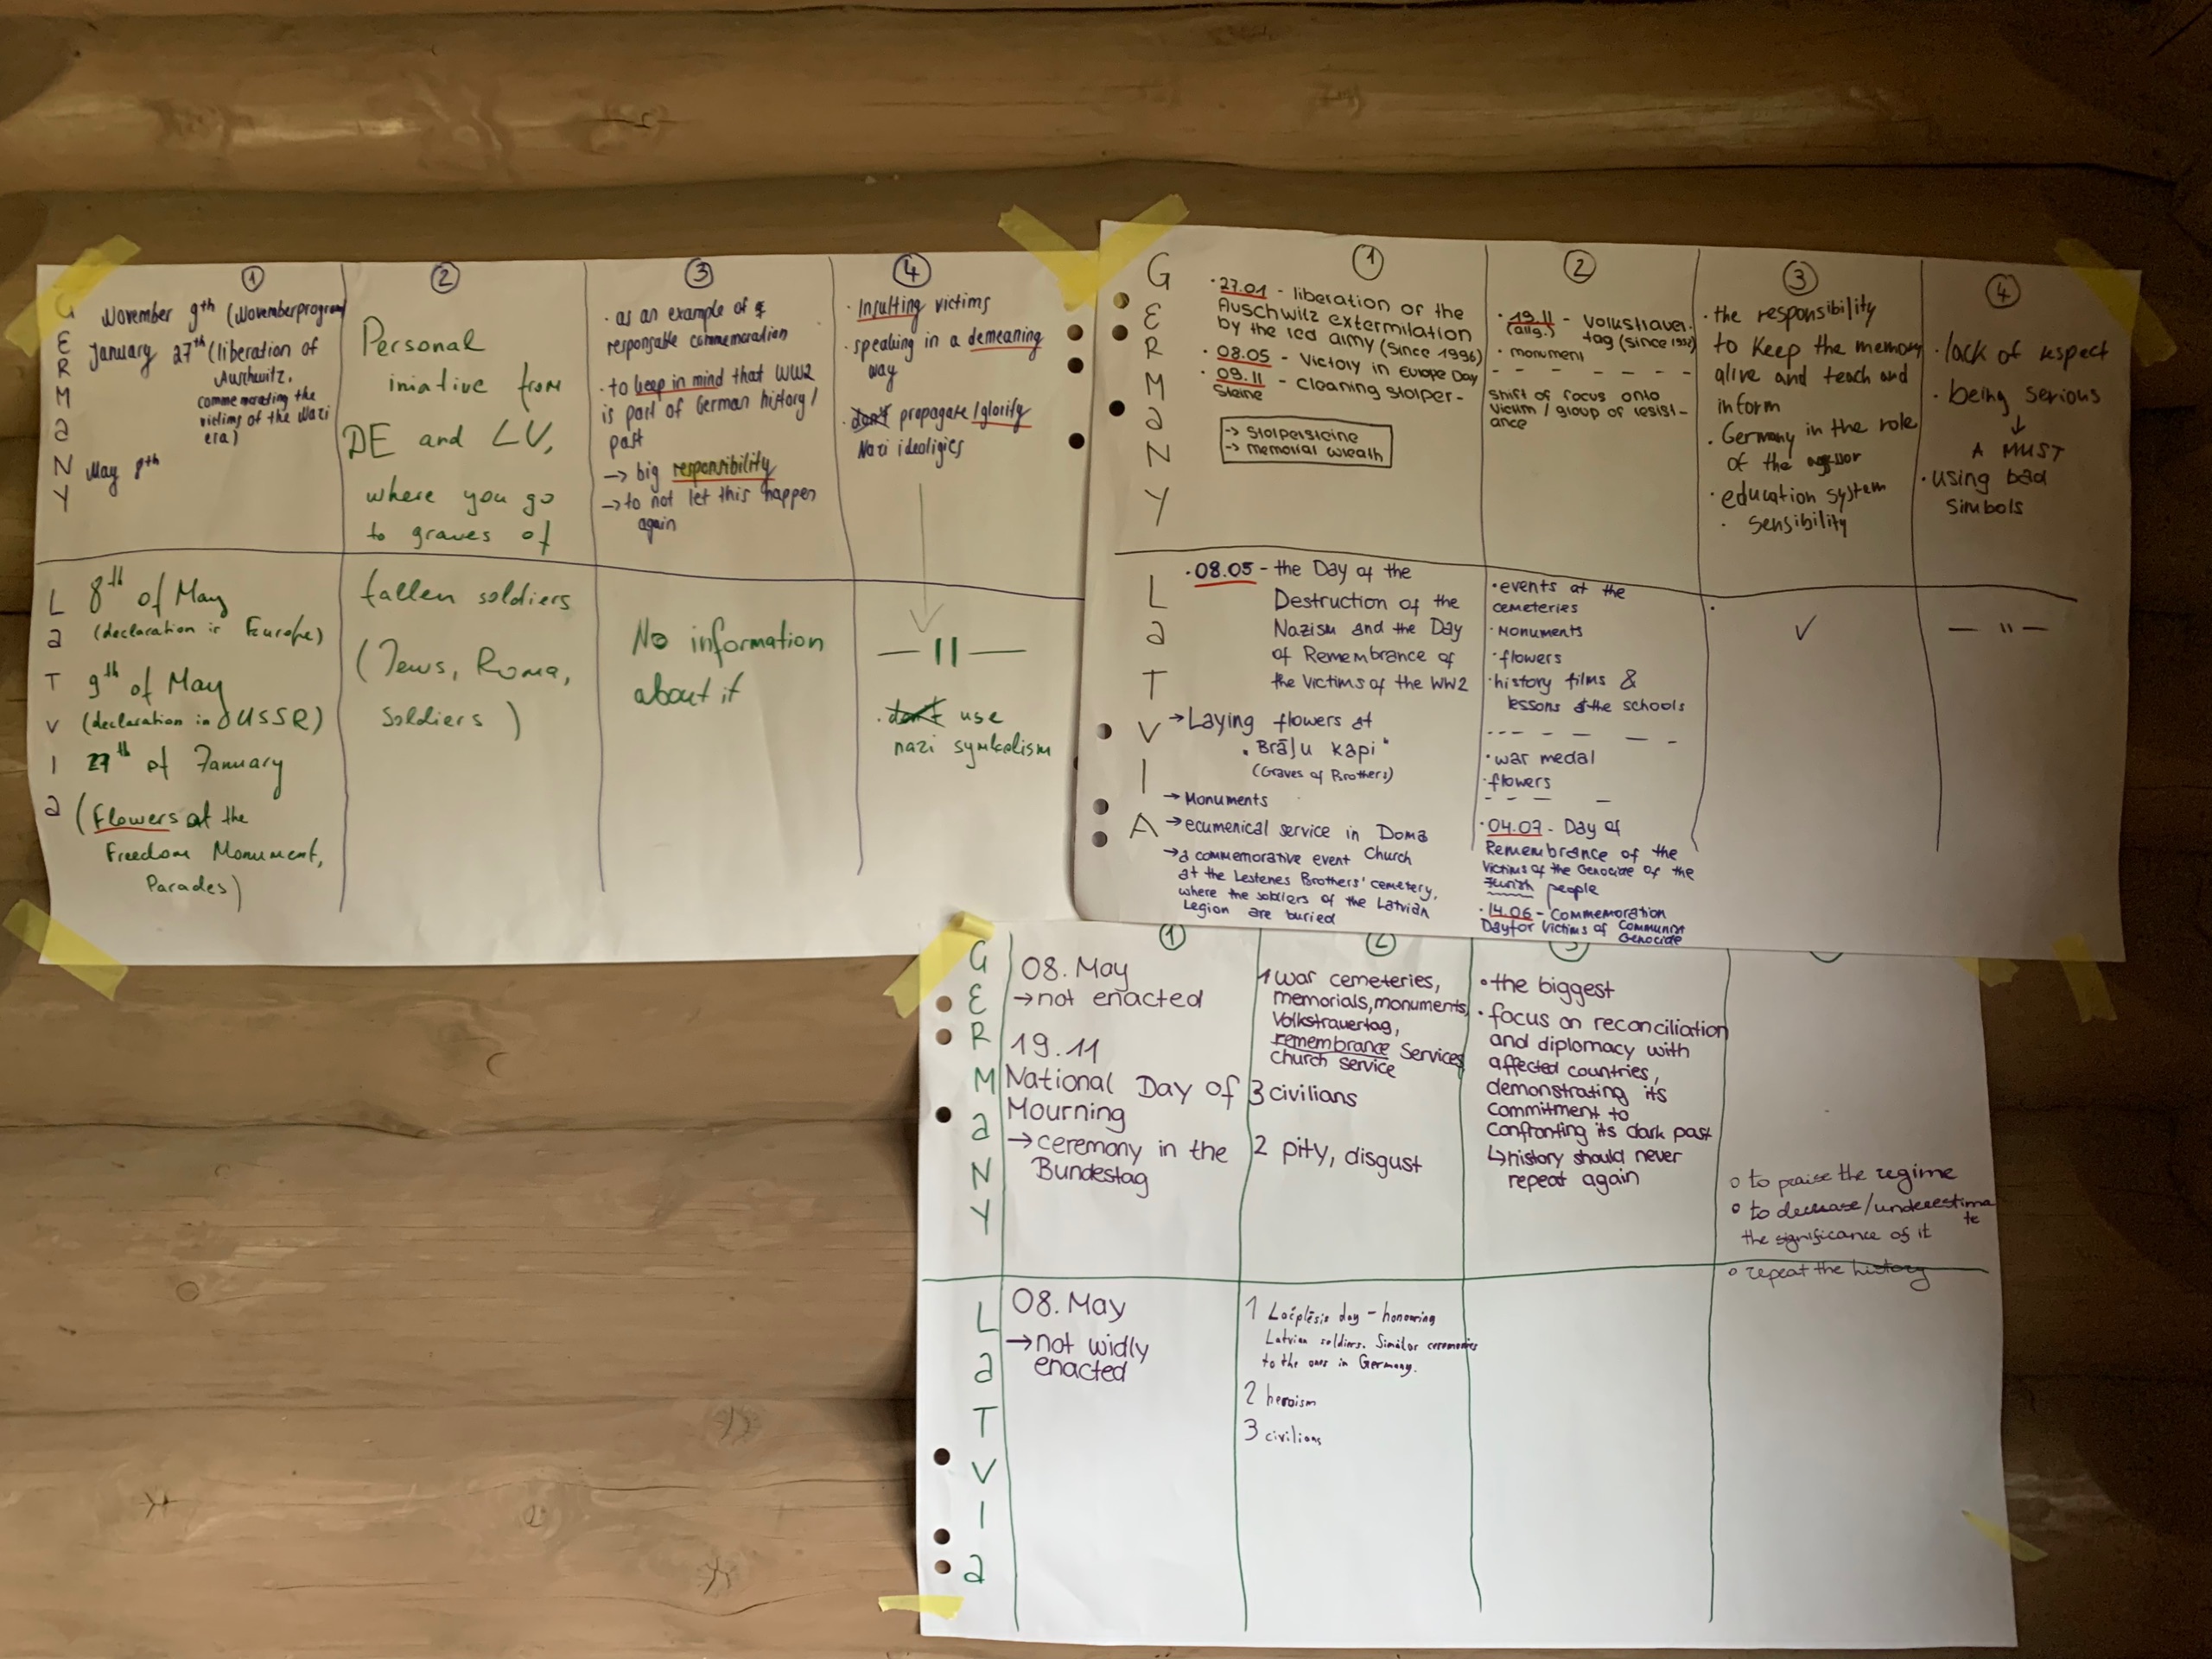 GERMANY
①
November 9th (Novemberprogrom)
January 27th (liberation of
Auschwitz,
commemorating the
victims of the Nazi
era)
May 8th
②
Personal
iniative from
DE and LV,
where you go
to graves of
fallen soldiers
(Jews, Roma,
Soldiers)
③
· as an example of
responsable commemoration
· to keep in mind that WW2
is part of German history/
past
→ big responsibility
→ to not let this happen
again
④
· Insulting victims
· speaking in a demeaning
way
· don't propagate/glorify
Nazi ideoligies
LaTVIa
8th of May
(declaration in Europe)
9th of May
(declaration in USSR)
27th of January
(Flowers at the
Freedom Monument,
Parades)
No information
about it
— 11 —
· don't use
nazi symbolism
GERMaNY
①
· 27.01 - liberation of the
Auschwitz extermilation
by the red army (since 1996)
· 08.05 - Victory in Europe Day
· 09.11 - Cleaning Stolper-
Steine
→ Stolpersteine
→ memorial wreath
②
· 19.11 - Volkstrauer-
(allg.) tag (since 1952)
· monument
- - - - - - -
Shift of focus onto
Victim / group of resist-
ance
③
· the responsibility
to keep the memory
alive and teach and
inform
· Germany in the role
of the
· education system
· sensibility
④
· lack of respect
· being serious
↓
A MUST
· using bad
simbols
LaTVIA
· 08.05 - the Day of the
Destruction of the
Nazism and the Day
of Remembrance of
the Victims of the WW2
→ Laying flowers at
"Brāļu kapi"
(Graves of Brothers)
→ Monuments
→ ecumenical service in Doma
Church
→ a commemorative event
at the Lestenes Brothers' cemetery,
where the soldiers of the Latvian
Legion are buried
· events at the
cemeteries
· Monuments
· flowers
· history films &
lessons at the schools
--- - - - -
· war medal
· flowers
- - - -
· 04.07 - Day of
Remembrance of the
Victims of the Genocide of the
Jewish people
· 14.06 - Commemoration
Day for Victims of Communist
Genocide
✓
— " —
GERMaNY
①
08. May
→ not enacted
19.11
National Day of
Mourning
→ ceremony in the
Bundestag
②
1 war cemeteries,
memorials, monuments,
Volkstrauertag,
remembrance Services,
church service
3 civilians
2 pity, disgust
· the biggest
· focus on reconciliation
and diplomacy with
affected countries,
demonstrating its
commitment to
confronting its dark past
↳ history should never
repeat again
o to praise the regime
o to decrease/underestima
te
the significance of it
o repeat the history
LaTVIa
08. May
→ not widly
enacted
1 Lāčplēsis day - honouring
Latvian soldiers. Similar ceremonies
to the ones in Germany.
2 heroism
3 civilians